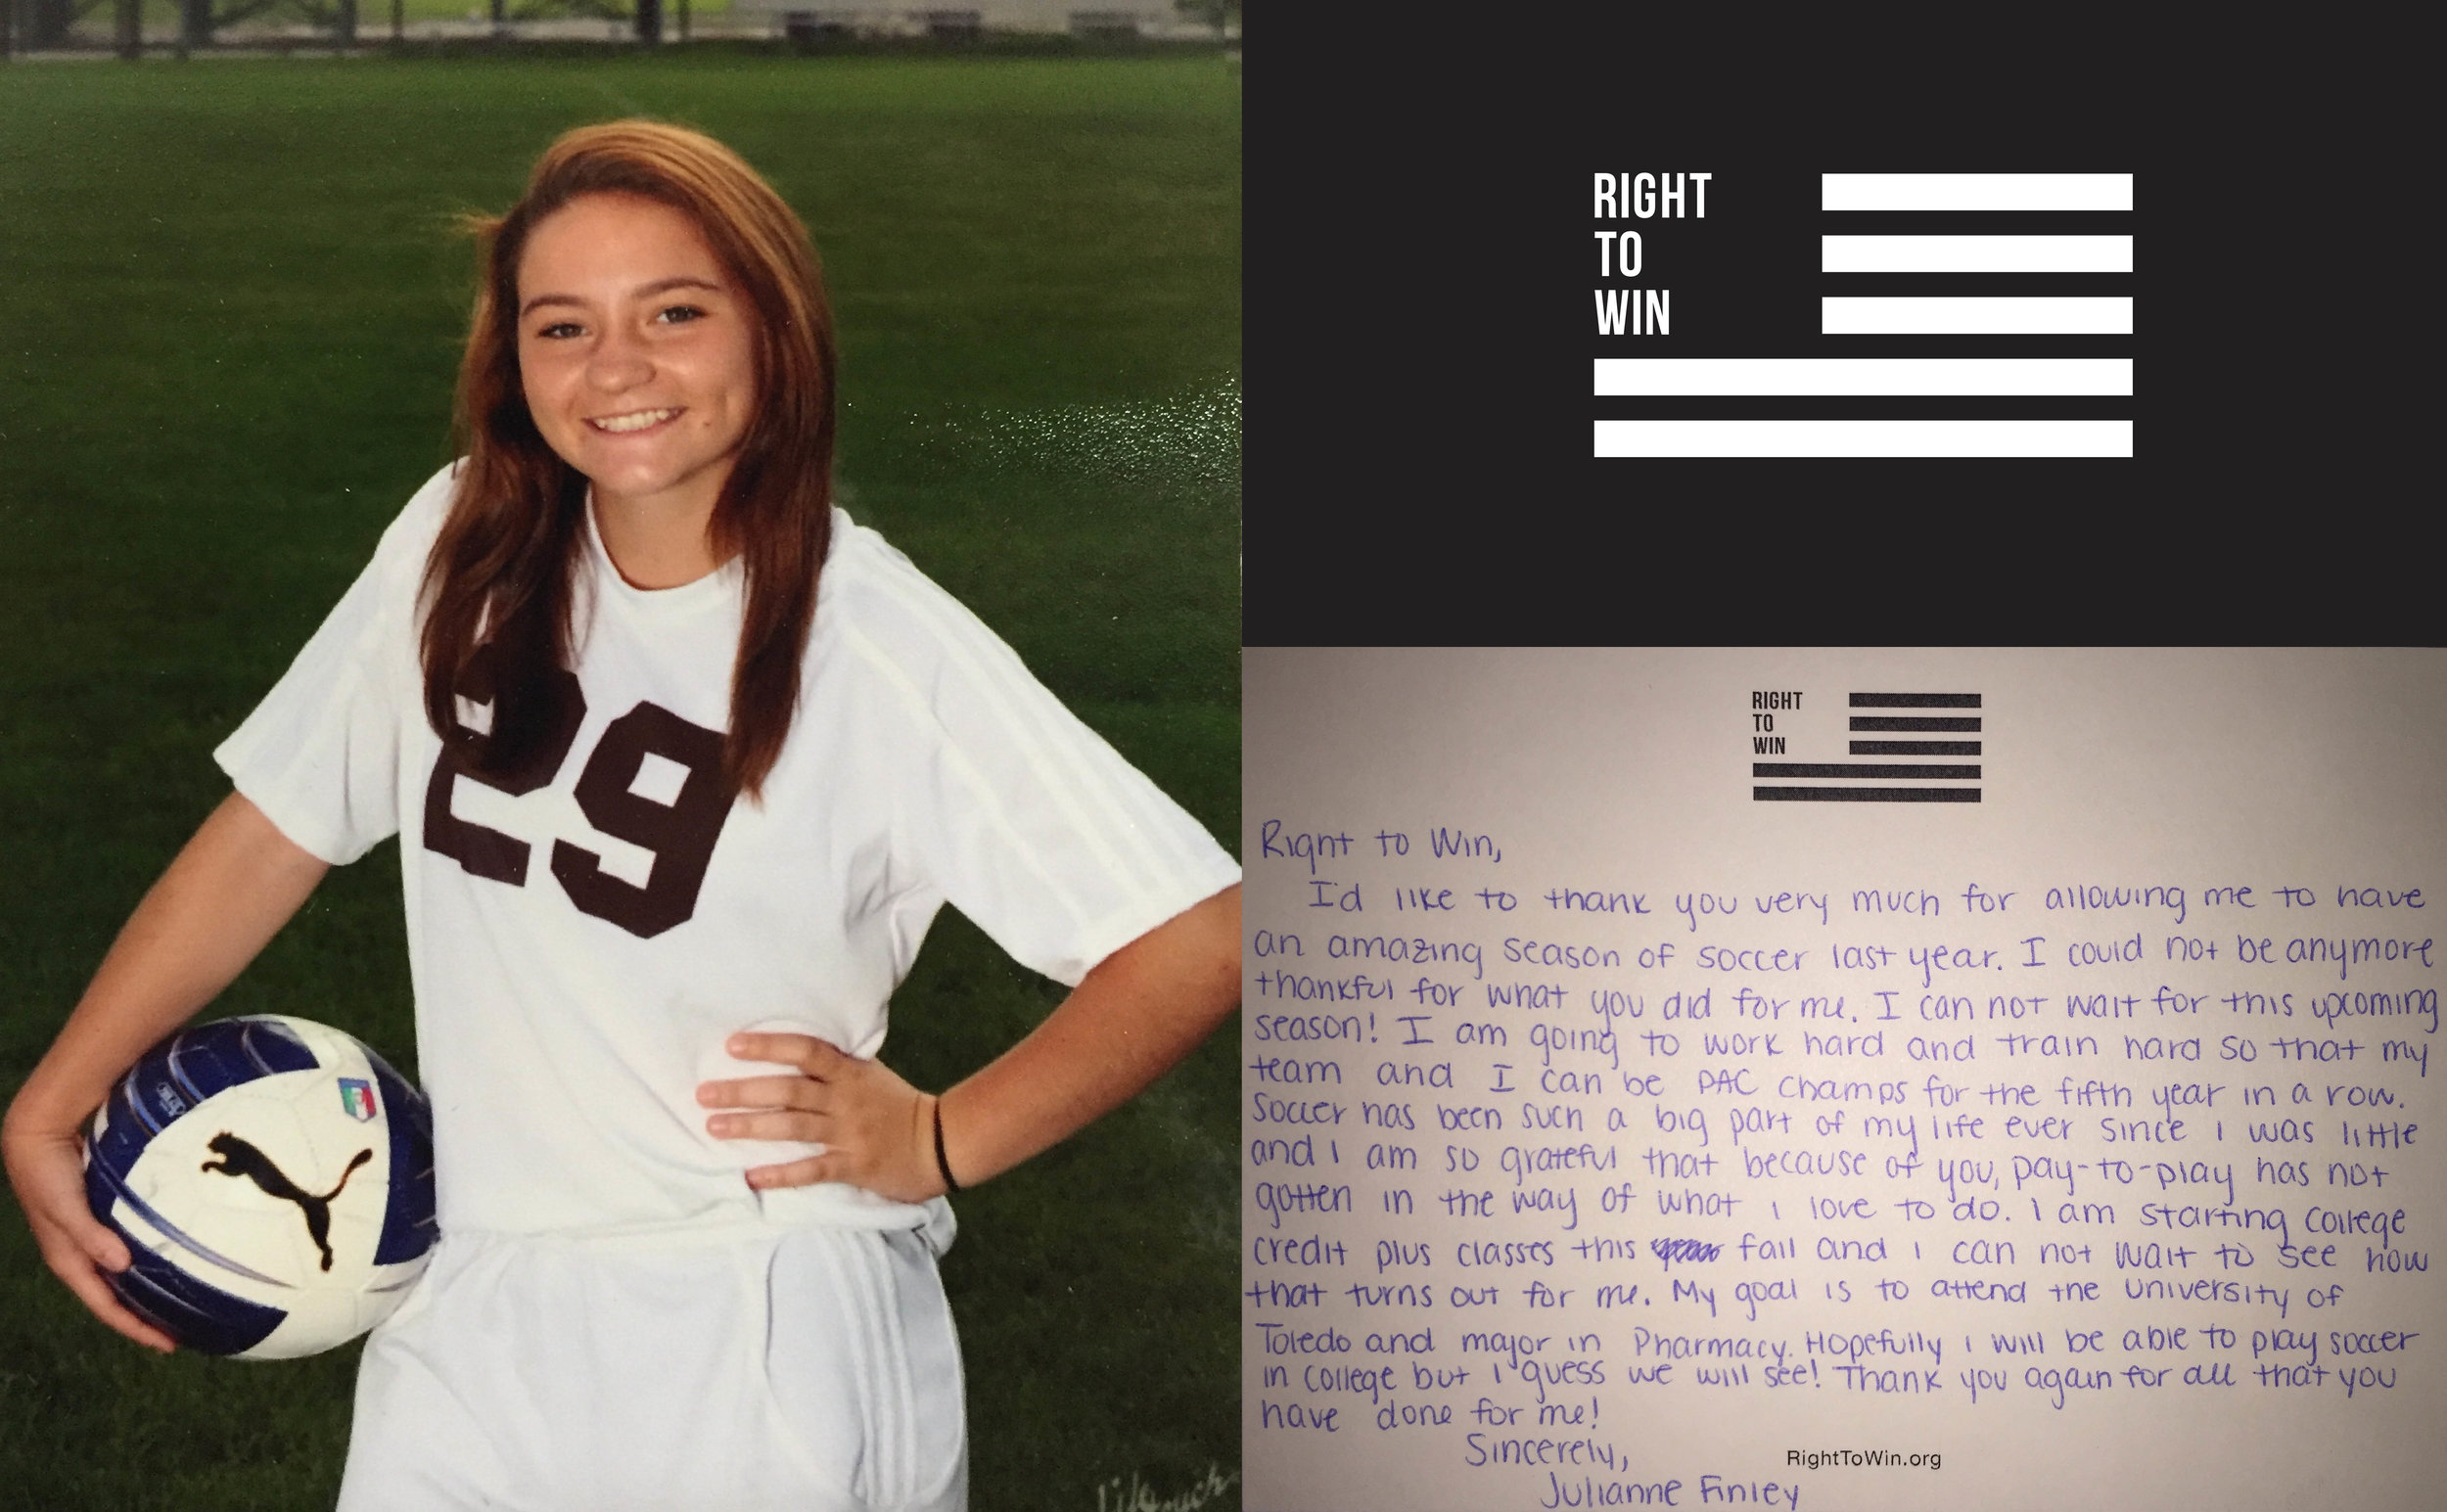 29
RIGHT
TO
WIN
RIGHT
TO
WIN
Right to Win,
I'd like to thank you very much for allowing me to have
an amazing season of soccer last year. I could not be anymore
thankful for what you did for me. I can not wait for this upcoming
season! I am going to work hard and train hard so that my
team and I can be PAC champs for the fifth year in a row.
Soccer has been such a big part of my life ever since I was little
and I am so grateful that because of you, pay-to-play has not
gotten in the way of what I love to do. I am starting college
credit plus classes this fall and I can not wait to see how
that turns out for me. My goal is to attend the University of
Toledo and major in Pharmacy. Hopefully I will be able to play soccer
in college but I guess we will see! Thank you again for all that you
have done for me!
Sincerely,
RightToWin.org
Julianne Finley